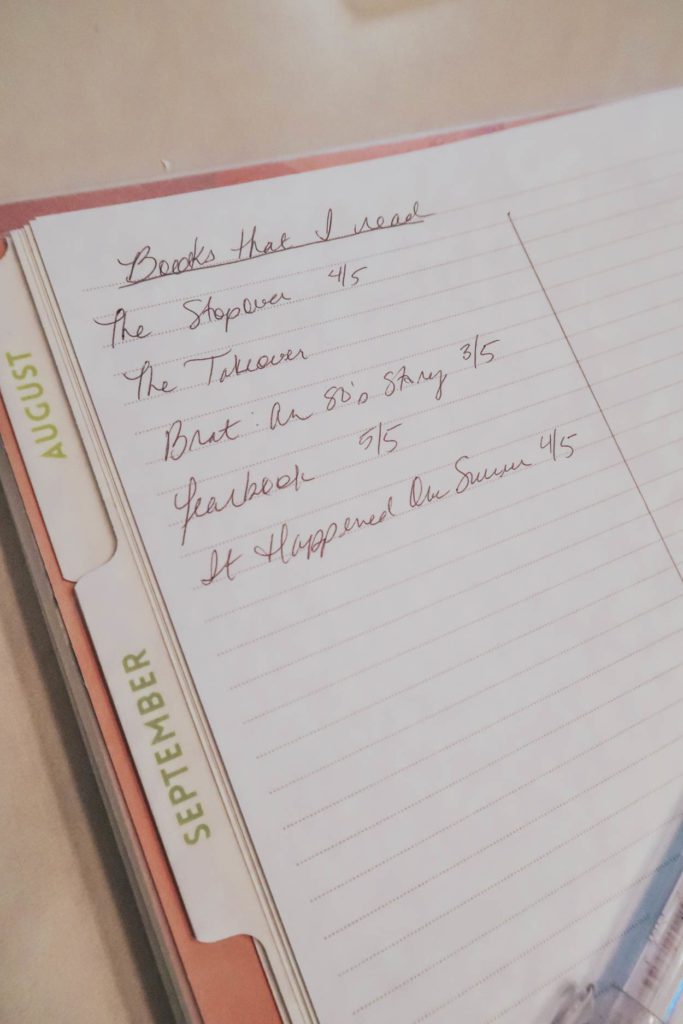 Books that I read
The Stopover 4/5
The Takeover
Brat: An 80's Story 3/5
Yearbook 5/5
It Happened One Summer 4/5
AUGUST
SEPTEMBER